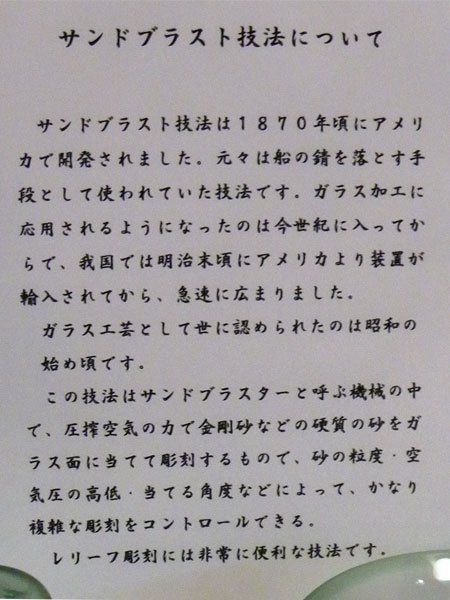 サンドブラスト技法について
サンドブラスト技法は１８７０年頃にアメリ
カで開発されました。元々は船の錆を落とす手
段として使われていた技法です。ガラス加工に
応用されるようになったのは今世紀に入ってか
らで、我国では明治末頃にアメリカより装置が
輸入されてから、急速に広まりました。
ガラス工芸として世に認められたのは昭和の
始め頃です。
この技法はサンドブラスターと呼ぶ機械の中
で、圧搾空気の力で金剛砂などの硬質の砂をガ
ラス面に当てて彫刻するもので、砂の粒度・空
気圧の高低・当てる角度などによって、かなり
複雑な彫刻をコントロールできる。
レリーフ彫刻には非常に便利な技法です．